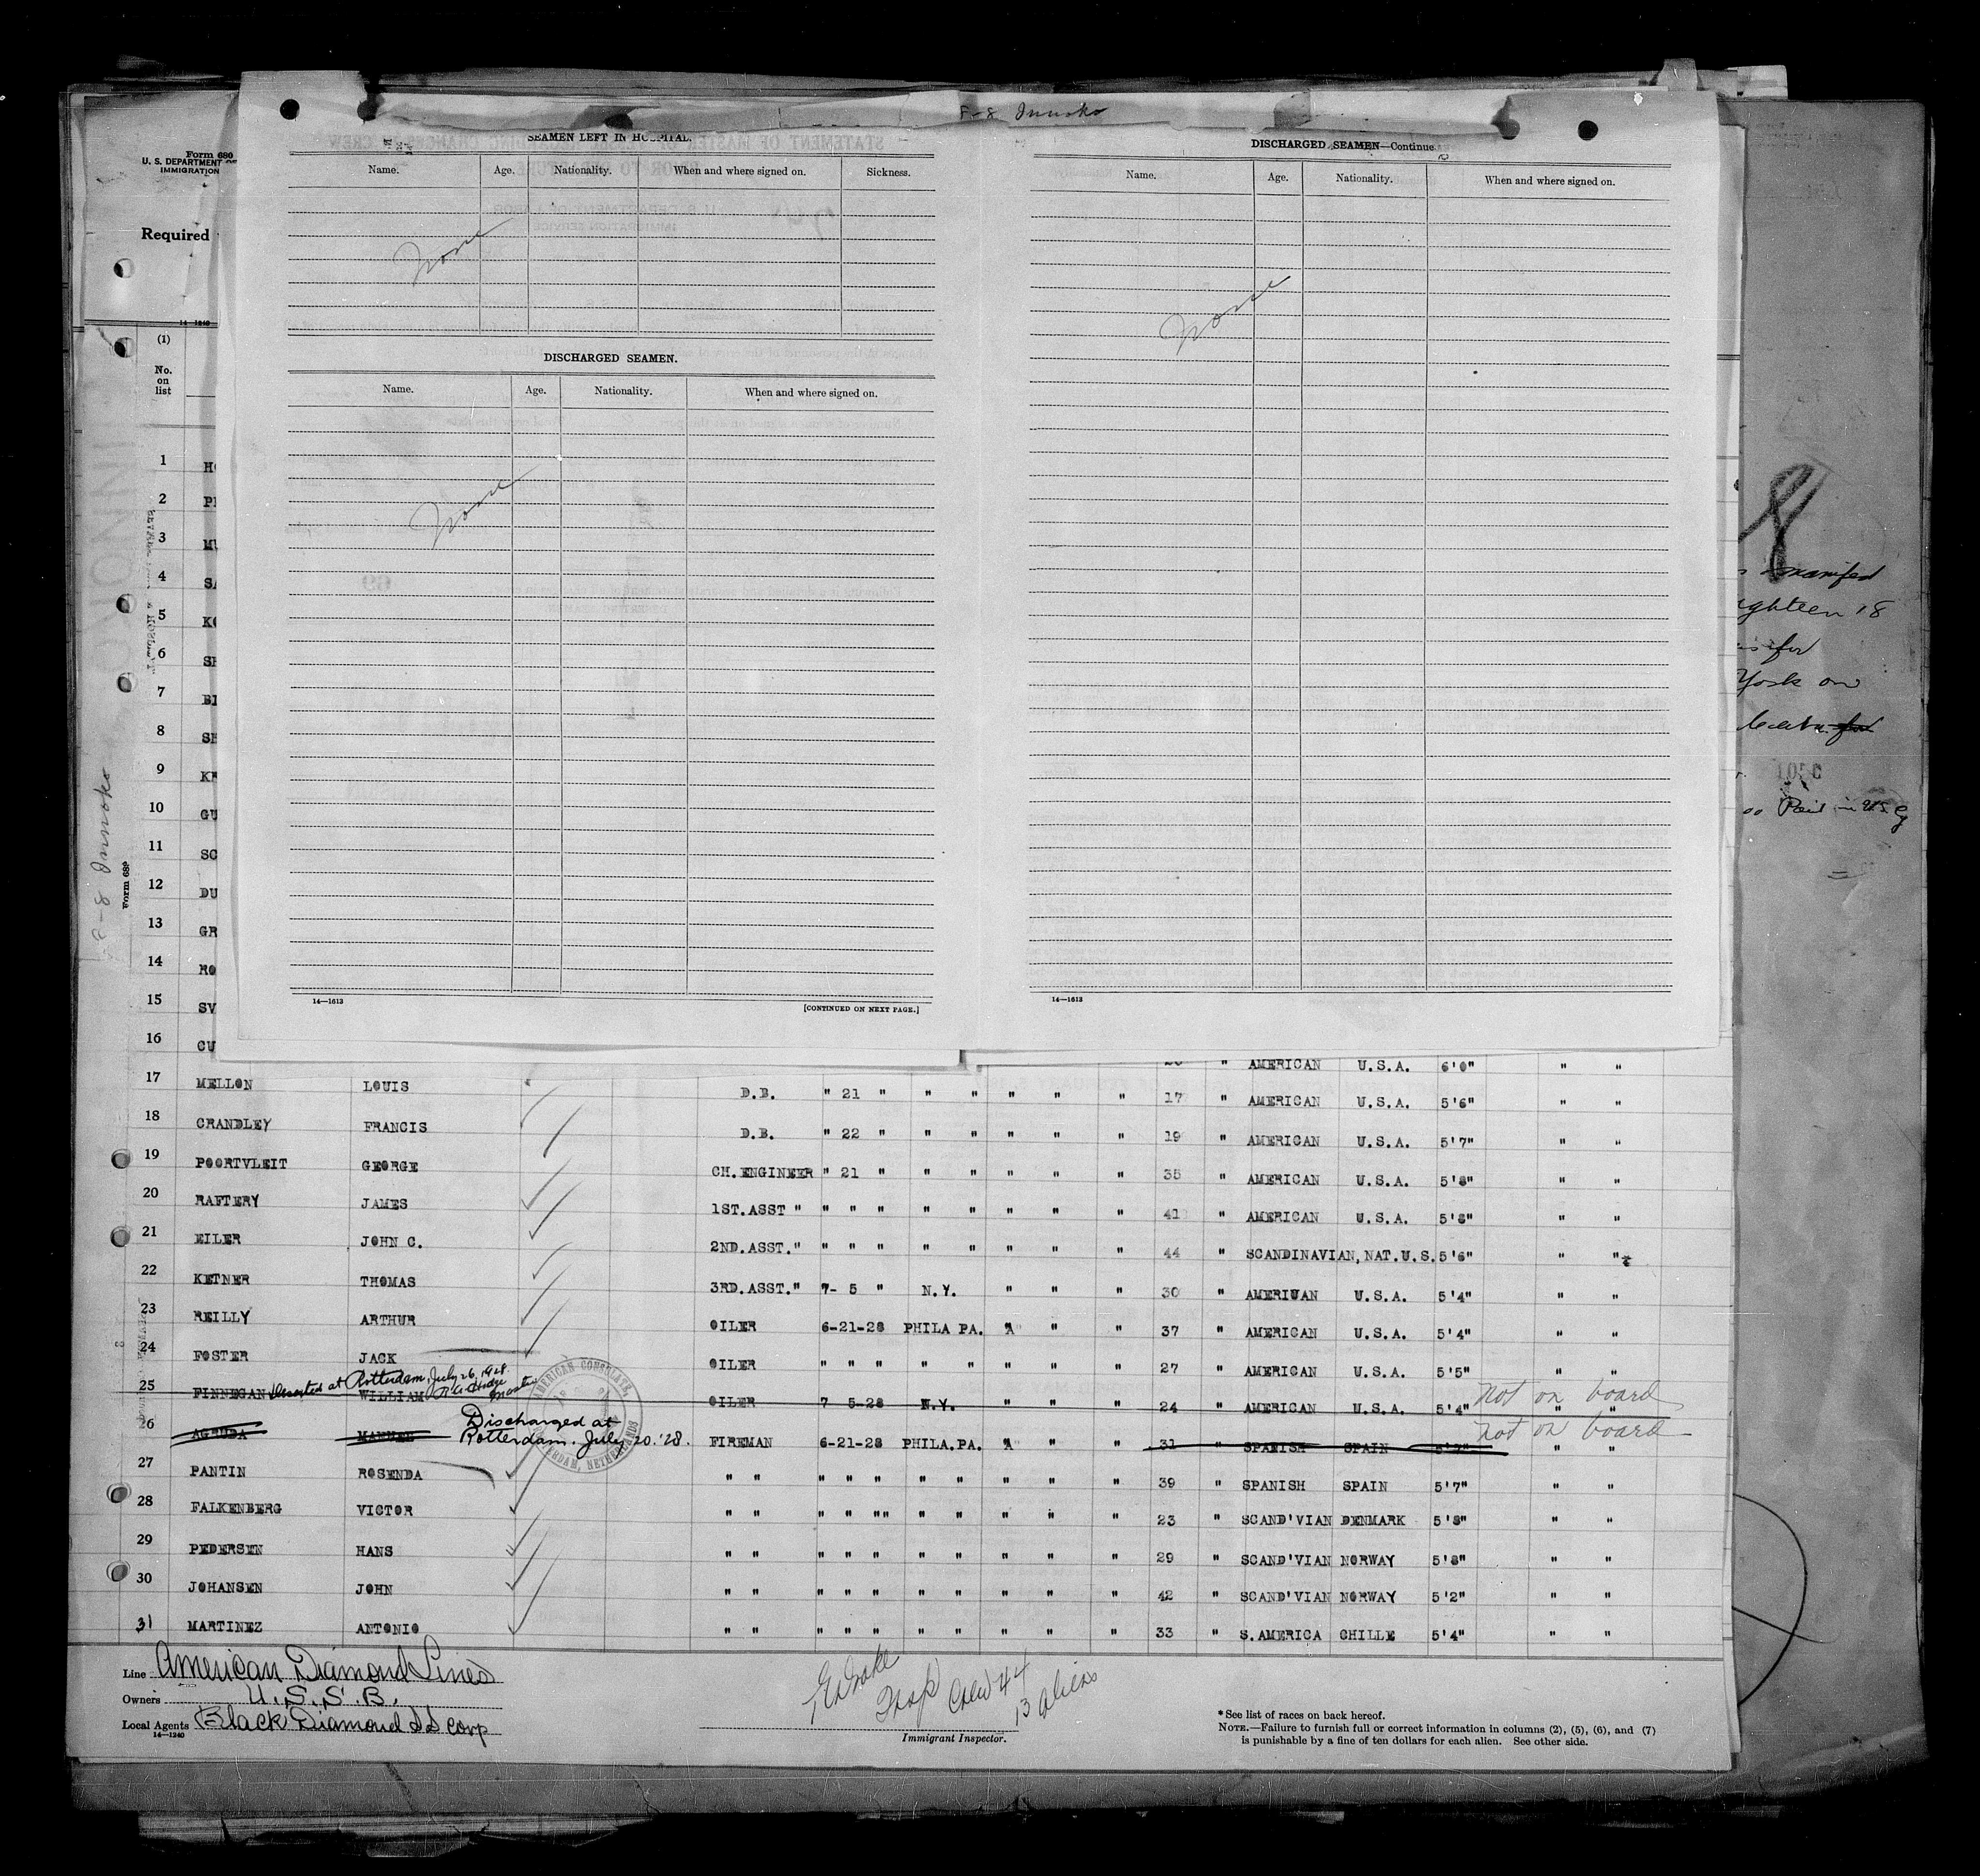 F-8 Innoko
Form 680
U. S. DEPARTMENT OF
IMMIGRATION
Required
14—1240
(1)
No.
on
list
SEAMEN LEFT IN HOSPITAL.
Name. Age. Nationality. When and where signed on. Sickness.
None
DISCHARGED SEAMEN.
Name. Age. Nationality. When and where signed on.
None
14—1613
[CONTINUED ON NEXT PAGE.]
DISCHARGED SEAMEN—Continue
Name. Age. Nationality. When and where signed on.
None
14—1613
8
manifed
ighteen 18
York on
Paid in U.S.
8-8 Innoko
Form 689
1 HO
2 PE
3 MU
4 SA
5 KO
6 SH
7 BI
8 SH
9 KR
10 GU
11 SC
12 DU
13 GR
14 RO
15 SV
16 CU " AMERICAN U.S.A. 6'0" " "
17 MELLON LOUIS D.B. " 21 " " " " " " 17 " AMERICAN U.S.A. 5'6" " "
18 CRANDLEY FRANCIS D.B. " 22 " " " " " " 19 " AMERICAN U.S.A. 5'7" " "
19 POORTVLEIT GEORGE CH.ENGINEER " 21 " " " " " " 35 " AMERICAN U.S.A. 5'8" " "
20 RAFTERY JAMES 1ST.ASST " " " " " " " " " 41 " AMERICAN U.S.A. 5'8" " "
21 EILER JOHN C. 2ND.ASST." " " " " " " " " 44 " SCANDINAVIAN,NAT.U.S. 5'6" " "
22 KETNER THOMAS 3RD.ASST." 7- 5 " N.Y. " " " 30 " AMERICAN U.S.A. 5'4" " "
23 REILLY ARTHUR OILER 6-21-28 PHILA PA. " " " 37 " AMERICAN U.S.A. 5'4" " "
24 FOSTER JACK OILER " " " " " " " " 27 " AMERICAN U.S.A. 5'5" " "
Deserted at Rotterdam, July 26, 1928.
Master
25 FINNEGAN WILLIAM OILER 7 5-28 N.Y. " " " 24 " AMERICAN U.S.A. 5'4" " " not on board
26 AGRUDA MANUEL Discharged at Rotterdam. July 20.'28. FIREMAN 6-21-28 PHILA.PA. " " " 31 " SPANISH SPAIN 5'7" " " not on board
AMERICAN CONSULATE, ROTTERDAM, NETHERLANDS
27 PANTIN ROSENDA " " " " " " " " " " 39 " SPANISH SPAIN 5'7" " "
28 FALKENBERG VICTOR " " " " "" " " " " " 23 " SCAND'VIAN DENMARK 5'8" " "
29 PEDERSEN HANS " " " " " " " " " " 29 " SCAND'VIAN NORWAY 5'8" " "
30 JOHANSEN JOHN " " " " " " " " " " 42 " SCAND'VIAN NORWAY 5'2" " "
31 MARTINEZ ANTONIO " " " " " " " " " " 33 " S.AMERICA CHILLE 5'4" " "
Line American Diamond Lines
Owners U.S.S.B.
Local Agents Black Diamond SS Corp
14—1240
Insp Crew 44
13 aliens
Immigrant Inspector.
* See list of races on back hereof.
NOTE.—Failure to furnish full or correct information in columns (2), (5), (6), and (7)
is punishable by a fine of ten dollars for each alien. See other side.